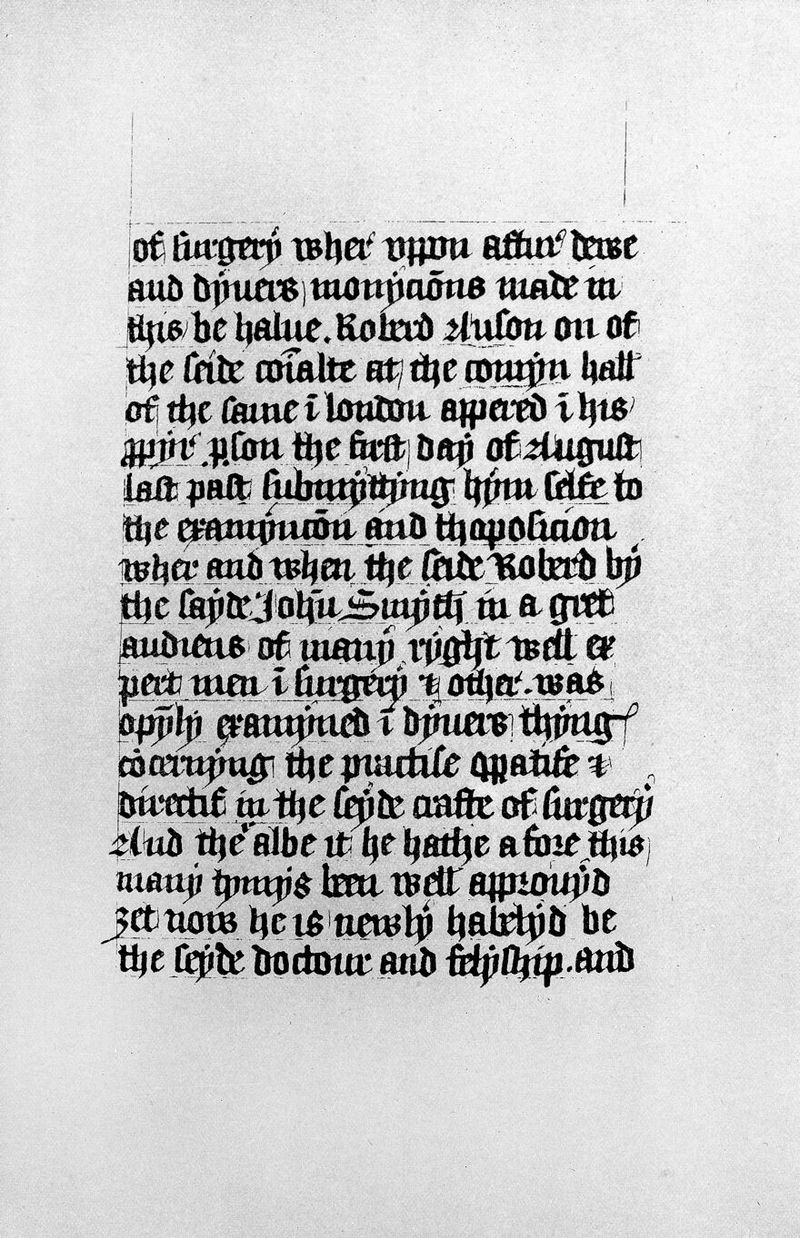 of surgery wher uppon aftur dewe
and dyuers monyciōns made in
this be halue. Roberd Anson on of
the seide coīalte at the comyn hall
of the same ī london appered ī his
ꝓpyr ꝑson the first day of August
last past submyttyng hym selfe to
the examynacōn and thaposicion
wher and when the seide Roberd by
the sayde Joh̄n Smyth in a gret
audiens of many ryght well ex
pert men ī surgery & other. was
opȳly examyned ī dyuers thyngꝭ
cōcernyng the practise oꝑatife &
directif in the seyde crafte of surgery
And the albe it he hathe a fore this
many tymys been well approuyd
ȝet now he is newly habelyd be
the seyde doctour and felyship. and